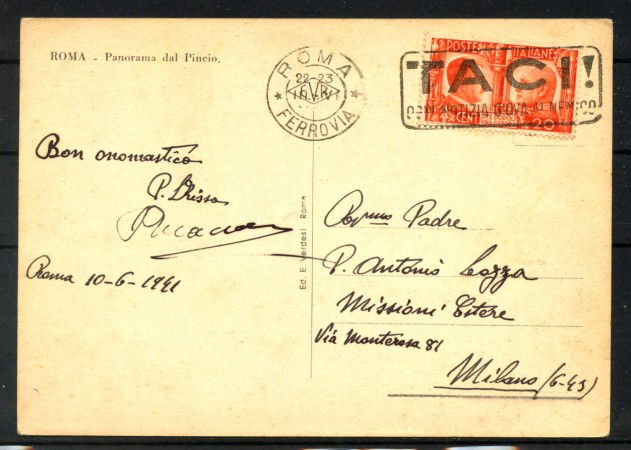 ROMA - Panorama dal Pincio.
ROMA
22-23
FERROVIA
POSTE ITALIANE
TACI!
OGNI NOTIZIA GIOVA AL NEMICO
CENT 20
Bon onomastico
P.
Roma 10-6-1941
Ed. E. Verdesi - Roma
Padre
P. Antonio Cozza
Missioni Estere
Via Monterosa 81
Milano (6-43)